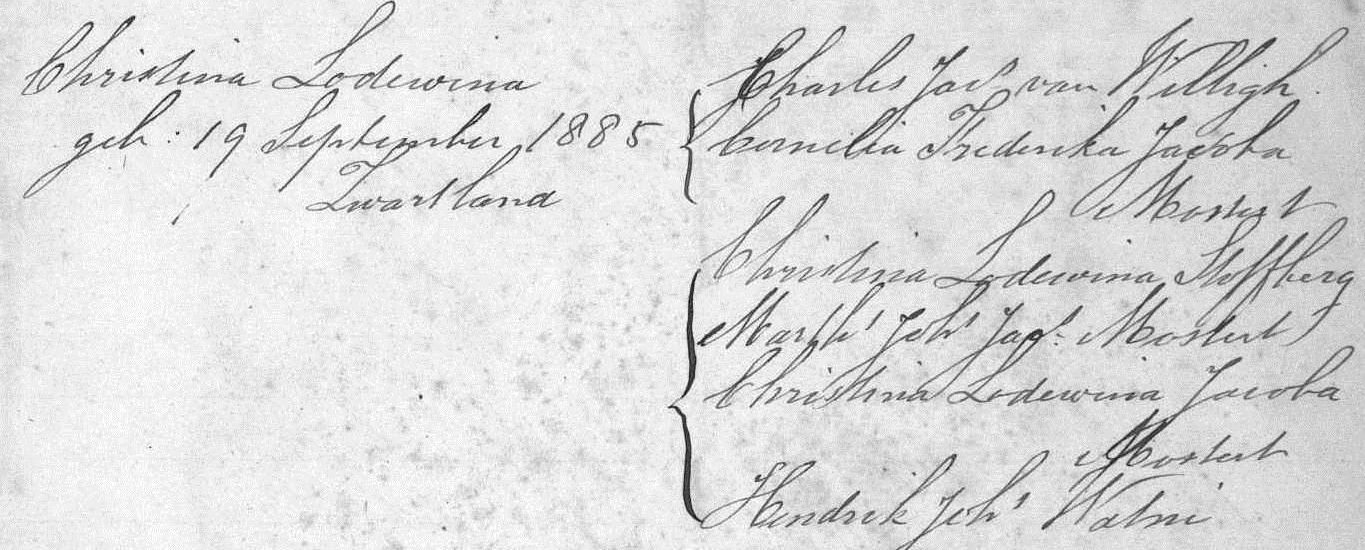 Christina Lodewina
geb: 19 September 1885
Zwartland
Charles Jacs van Willigh.
Cornelia Frederika Jacoba
Mostert
Christina Lodewina Stoffberg
Marths Johs Jacs. Mostert
Christina Lodewina Jacoba
Mostert
Hendrik Johs